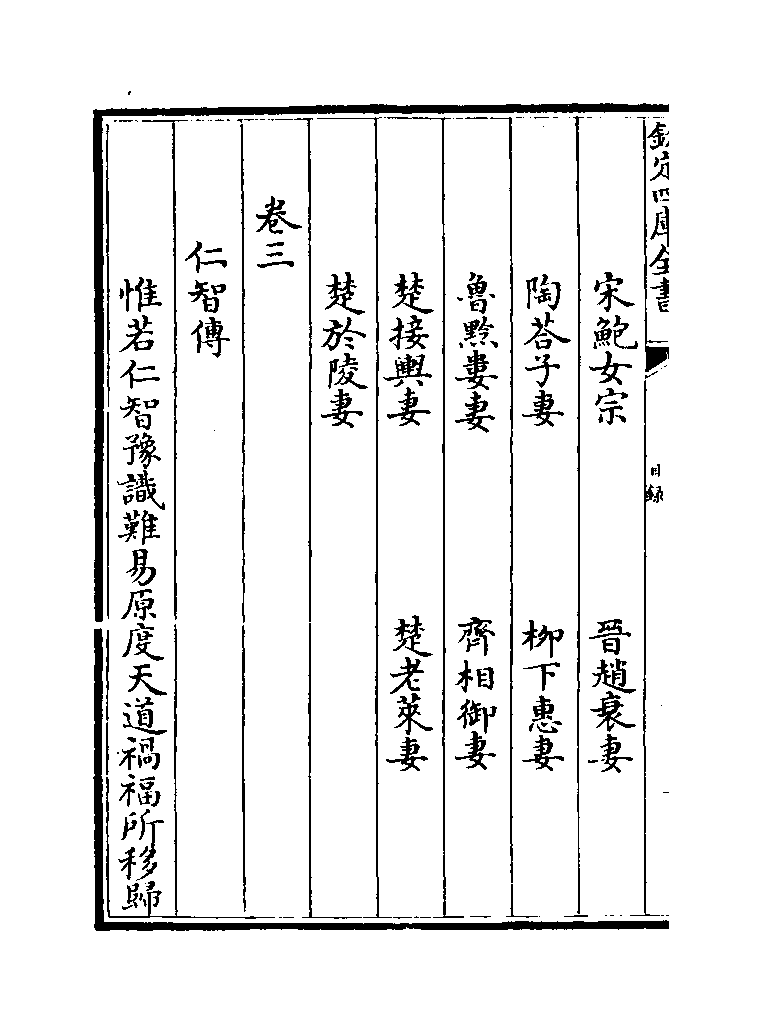 欽定四庫全書
目錄
宋鮑女宗 晉趙衰妻
陶荅子妻 柳下惠妻
魯黔婁妻 齊相御妻
楚接輿妻 楚老萊妻
楚於陵妻
卷三
仁智傳
惟若仁智豫識難易原度天道禍福所移歸